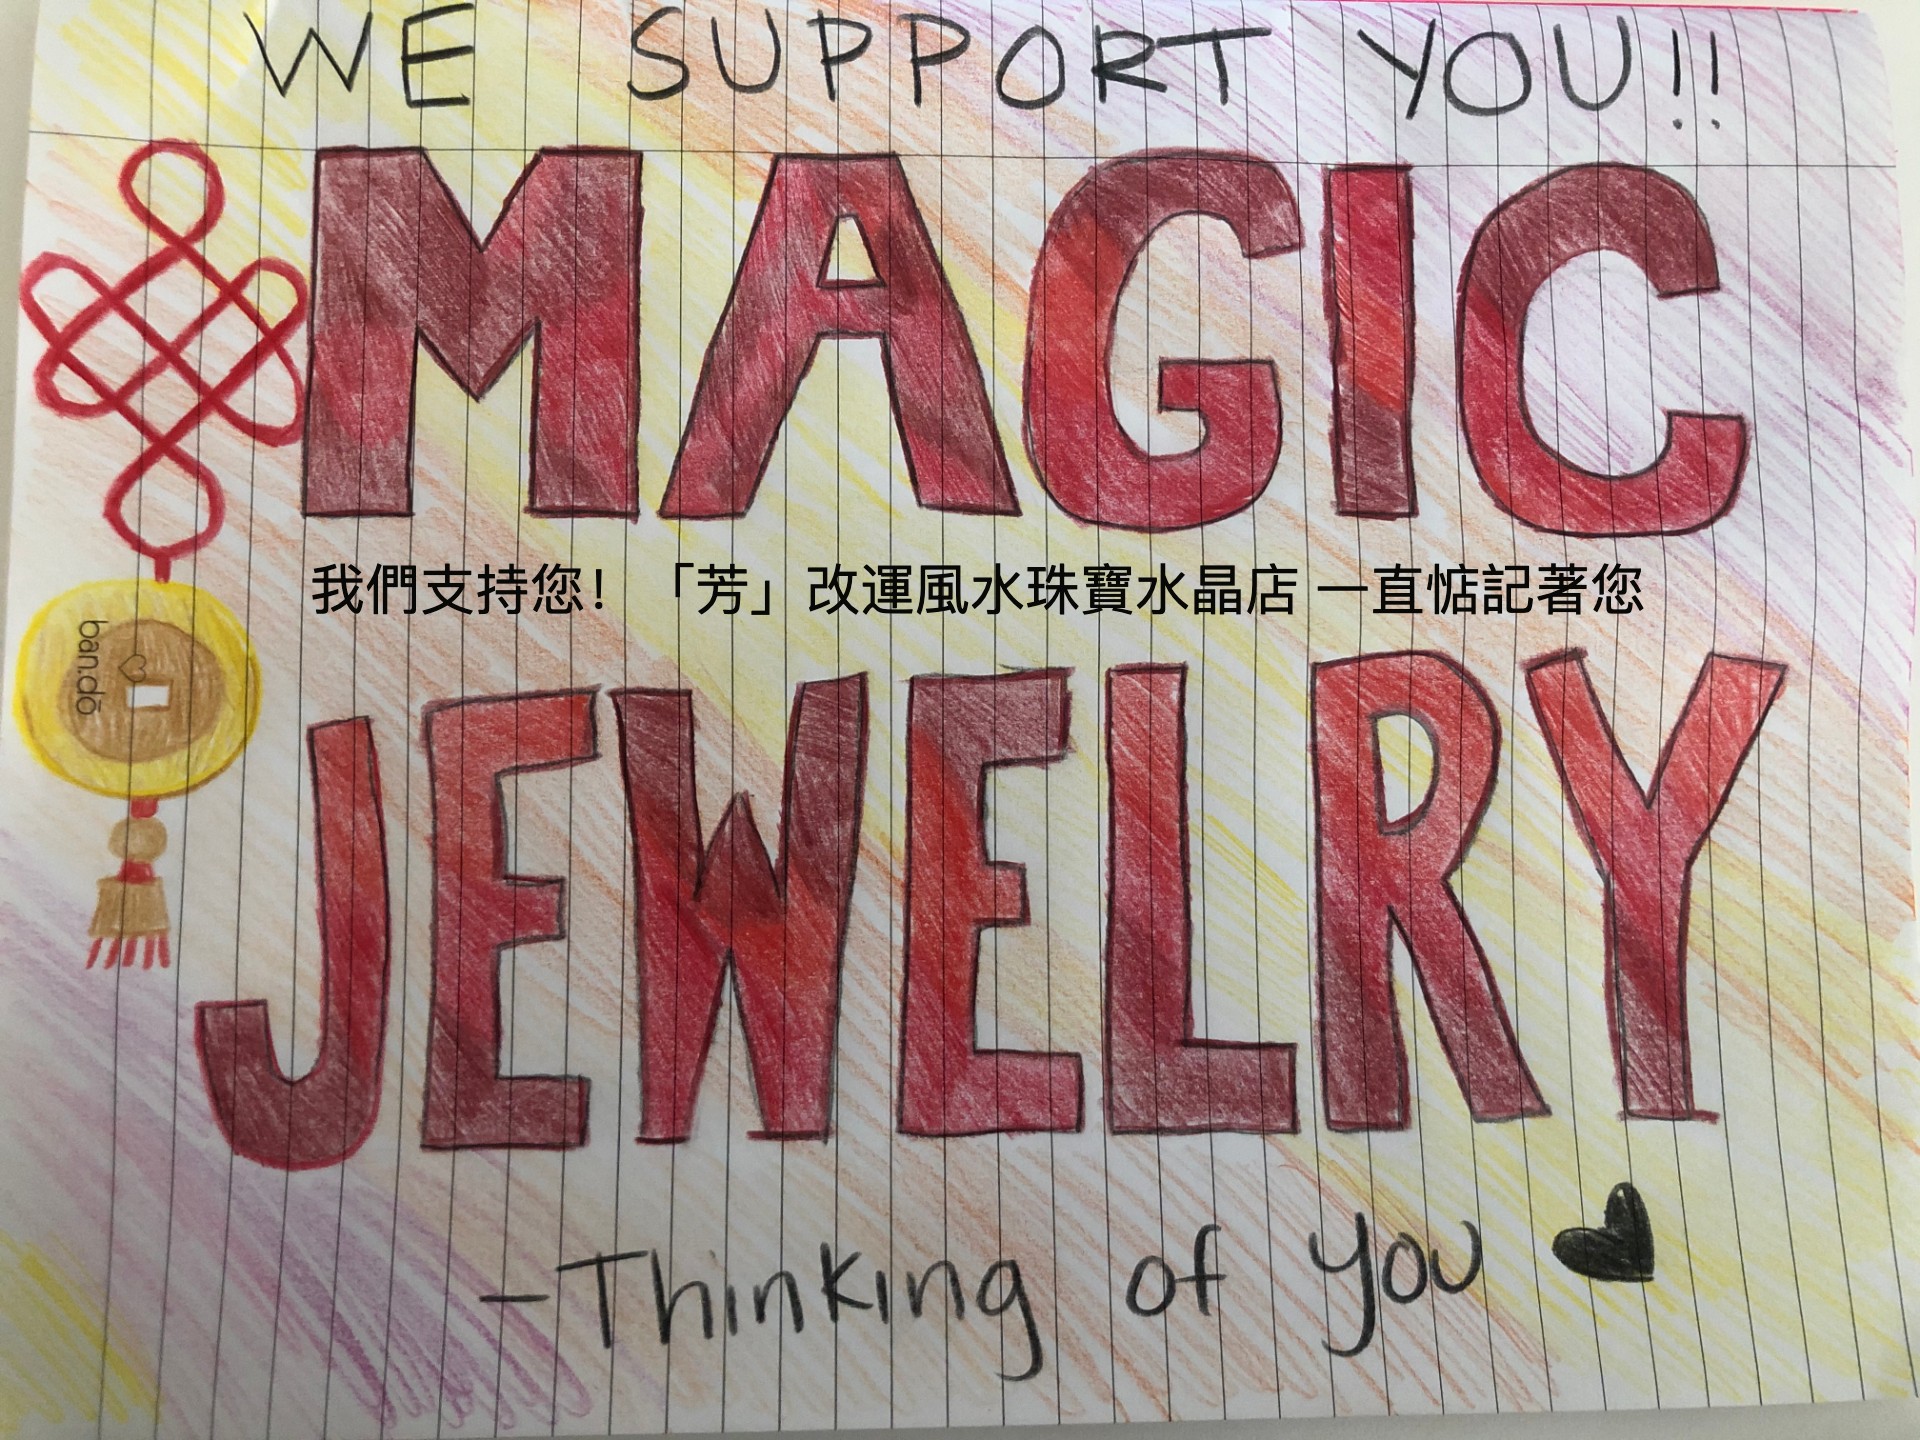 WE SUPPORT YOU!!
MAGIC
我們支持您！「芳」改運風水珠寶水晶店 一直惦記著您
ban.dō
JEWELRY
-Thinking of you